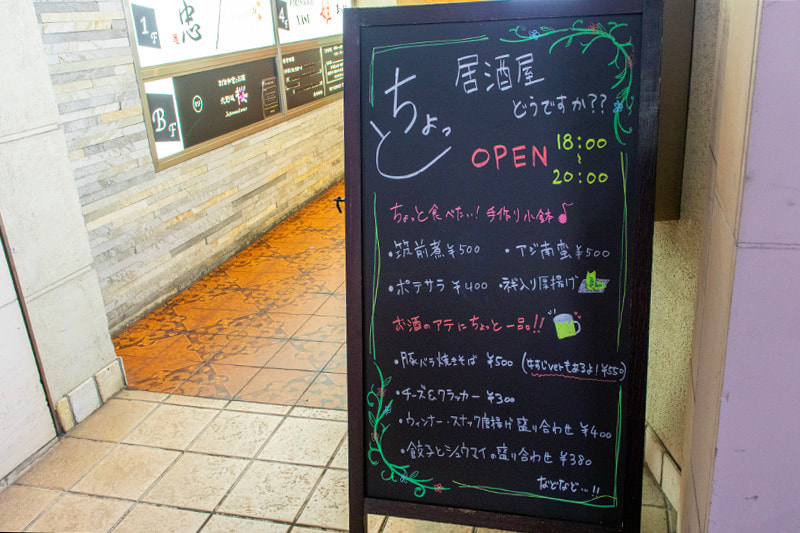 1F
忠
4F
BF
居酒屋
ちょっと
どうですか??
OPEN 18:00
~
20:00
ちょっと食べたい!手作り小鉢♪
・筑前煮¥500 ・アジ南蛮¥500
・ポテサラ¥400 ・ネギ入り厚揚げ
お酒のアテにちょっと一品!!
・豚バラ焼きそば ¥500 (牛すじverもあるよ!¥550)
・チーズ&クラッカー ¥300
・ウィンナー・スナック唐揚げ盛り合わせ ¥400
・餃子とシュウマイの盛り合わせ ¥380
などなど...!!